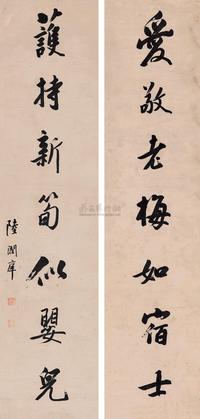 愛敬老梅如宿士
護持新筍似嬰兒
陸潤庠